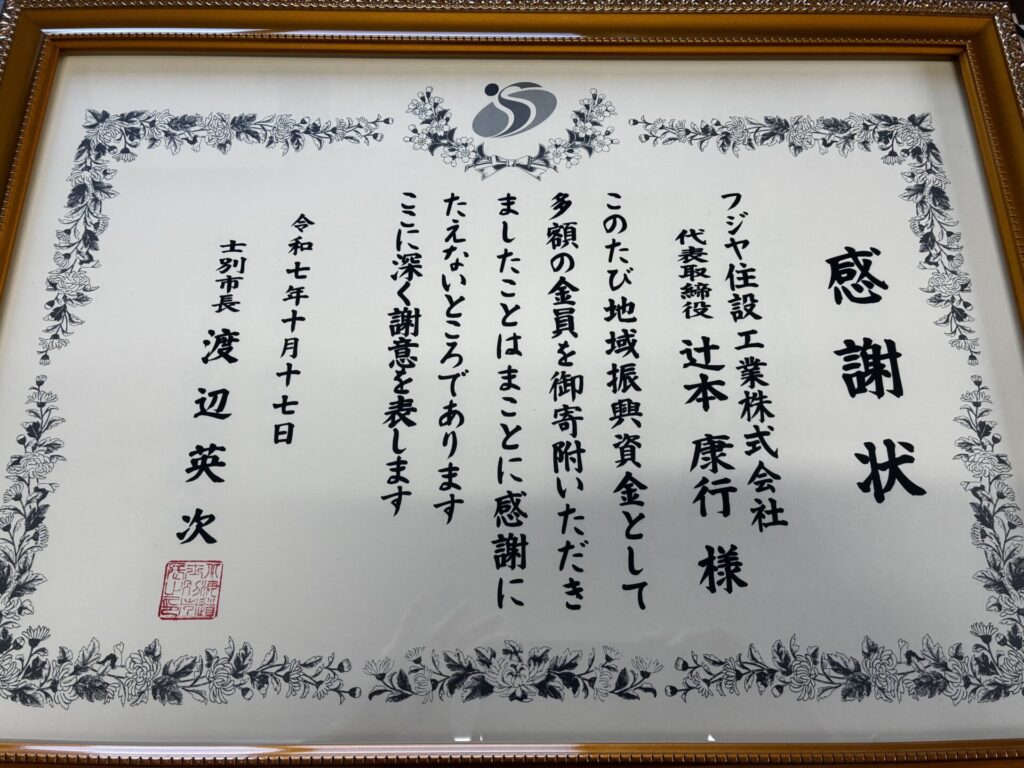 感謝状
フジヤ住設工業株式会社
代表取締役 辻本康行様
このたび地域振興資金として
多額の金員を御寄附いただき
ましたことはまことに感謝に
たえないところであります
ここに深く謝意を表します
令和七年十月十七日
士別市長 渡辺英次